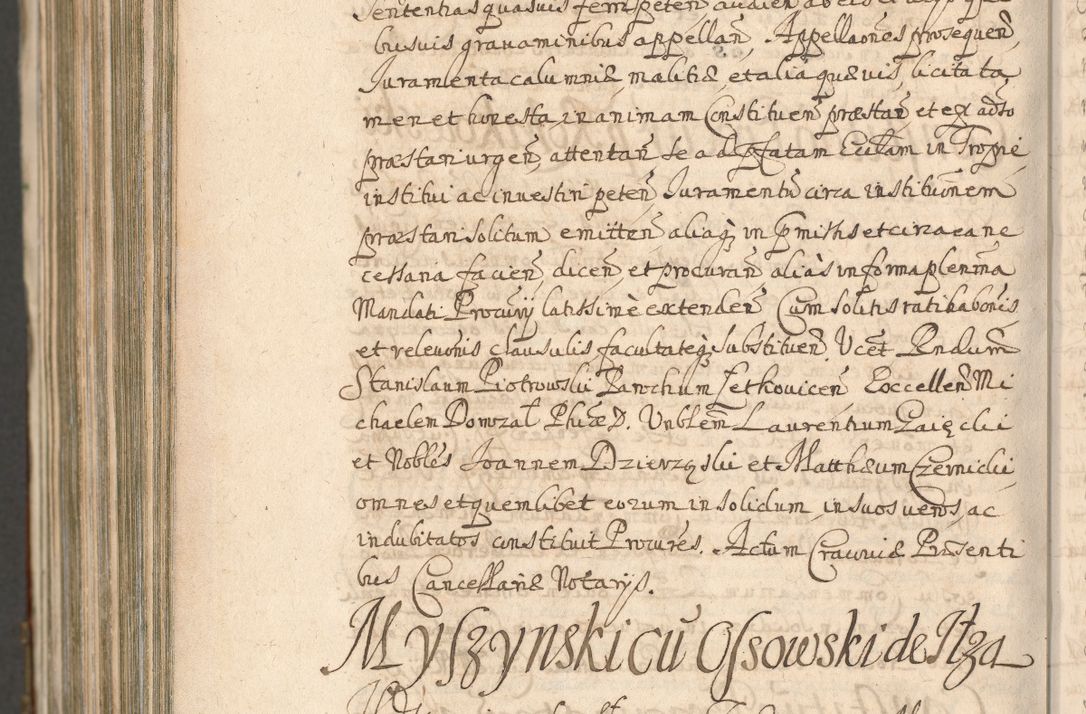 Sententias quasuis ferri peten audien ab eis et
busuis grauaminibus appellan, Appellaones prosequen,
Iuramenta calumniæ malitiæ et alia quæuis licita ta
men et honesta in animam Constituen præstan et ex adso
præstari urgen, attentan se ad pfatam Ecclam in Tropie
institui ac inuestiri peten Iuramentū circa institutionem
præstari solitum emitten aliaq in pmissis et circa ea ne
cessaria facien dicen et procuran aliàs in forma plenima
Mandati Procurij latissimè extenden Cum solitis ratihabonis
et releuonis clausulis facultateq substituen. Ucet Rndum
Stanislaum Piotrowski Parochum Zetkouicen Excellen Mi
chaelem Domzal Phiæ D. Unblem Laurentium Paięcki
et Nobles Joannem Dzierzęski et Matthæum Czernicki
omnes et quemlibet eorum in solidum in suos ueros, ac
indubitatos constituit Procures. Actum Cracouiæ Præsenti
bus Cancellariæ Notarijs.
Myszynski cū Ossowski de Iłza